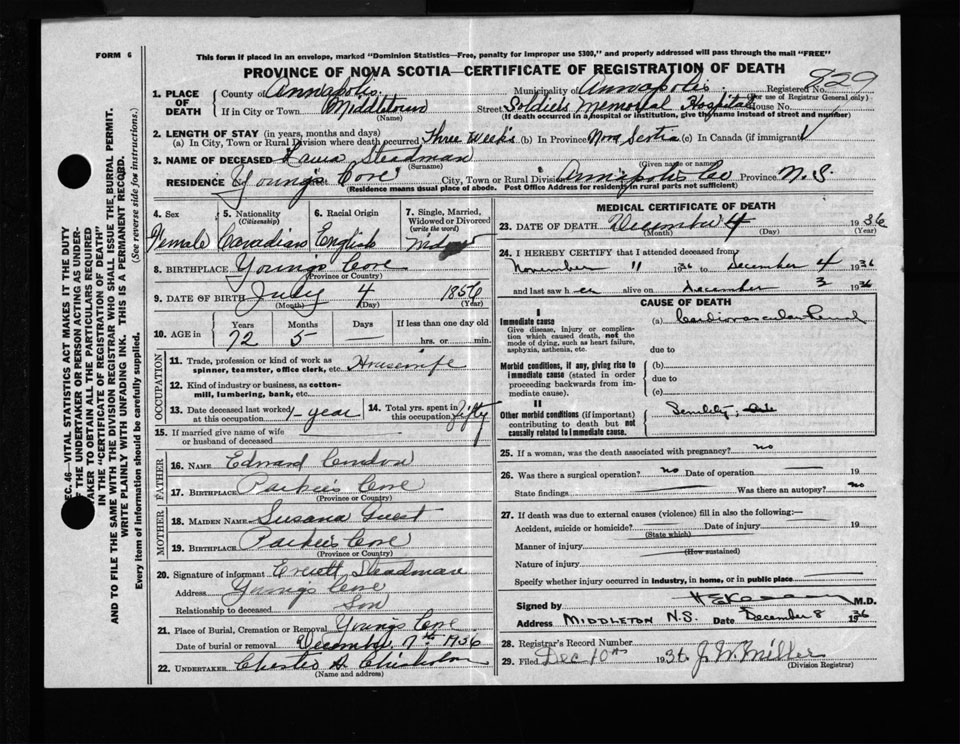 FORM 6
This form if placed in an envelope, marked "Dominion Statistics—Free, penalty for improper use $300," and properly addressed will pass through the mail "FREE"
PROVINCE OF NOVA SCOTIA—CERTIFICATE OF REGISTRATION OF DEATH
829
1. PLACE OF DEATH
County of Annapolis
Municipality of Annapolis Registered No.
(For use of Registrar General only)
If in City or Town Middletown Street Soldiers Memorial Hospital House No.
(Name) (If death occurred in a hospital or institution, give the name instead of street and number)
2. LENGTH OF STAY (in years, months and days)
(a) In City, Town or Rural Division where death occurred Three Weeks (b) In Province Nova Scotia (c) In Canada (if immigrant)
3. NAME OF DECEASED Steadman
(Surname) (Given name or names)
RESIDENCE Young's Cove City, Town or Rural Division Annapolis Co Province N. S.
(Residence means usual place of abode. Post Office Address for residents in rural parts not sufficient)
4. Sex Female
5. Nationality (Citizenship) Canadian
6. Racial Origin English
7. Single, Married, Widowed or Divorced (write the word)
8. BIRTHPLACE Young's Cove
(Province or Country)
9. DATE OF BIRTH July 4 1856
(Month) (Day) (Year)
10. AGE in Years 72 Months 5 Days — If less than one day old hrs. or min.
OCCUPATION
11. Trade, profession or kind of work as spinner, teamster, office clerk, etc. Housewife
12. Kind of industry or business, as cotton-mill, lumbering, bank, etc.
13. Date deceased last worked at this occupation 1-year
14. Total yrs. spent in this occupation fifty
15. If married give name of wife or husband of deceased
FATHER
16. NAME Edward Condon
17. BIRTHPLACE Parkers Cove
(Province or Country)
MOTHER
18. MAIDEN NAME Susana Guest
19. BIRTHPLACE Parkers Cove
(Province or Country)
20. Signature of informant Everett Steadman
Address Youngs Cove
Relationship to deceased Son
21. Place of Burial, Cremation or Removal Youngs Cove
Date of burial or removal December 7th 1936
22. UNDERTAKER Chisholm
(Name and address)
MEDICAL CERTIFICATE OF DEATH
23. DATE OF DEATH December 4 1936
(Month) (Day) (Year)
24. I HEREBY CERTIFY that I attended deceased from
November 11 1936 to December 4 1936
and last saw her alive on December 3 1936
CAUSE OF DEATH
I
Immediate cause
Give disease, injury or complication which caused death, not the mode of dying, such as heart failure, asphyxia, asthenia, etc.
(a) Cardiovascular Renal
due to
Morbid conditions, if any, giving rise to immediate cause (stated in order proceeding backwards from immediate cause).
(b)
due to
(c)
II
Other morbid conditions (if important) contributing to death but not causally related to immediate cause.
Senility,
25. If a woman, was the death associated with pregnancy? no
26. Was there a surgical operation? no Date of operation — 19
State findings Was there an autopsy? no
27. If death was due to external causes (violence) fill in also the following:—
Accident, suicide or homicide? Date of injury 19
(State which)
Manner of injury
(How sustained)
Nature of injury
Specify whether injury occurred in industry, in home, or in public place
Signed by M.D.
Address MIDDLETON N.S. Date December 8 1936
28. Registrar's Record Number
29. Filed Dec 10th 1936 J. W. Miller
(Division Registrar)
SEC. 46—VITAL STATISTICS ACT MAKES IT THE DUTY
OF THE UNDERTAKER OR PERSON ACTING AS UNDER-
TAKER TO OBTAIN ALL THE PARTICULARS REQUIRED
IN THE "CERTIFICATE OF REGISTRATION OF DEATH"
AND TO FILE THE SAME WITH THE DIVISION REGISTRAR WHO SHALL ISSUE THE BURIAL PERMIT.
WRITE PLAINLY WITH UNFADING INK. THIS IS A PERMANENT RECORD.
Every item of information should be carefully supplied. (See reverse side for instructions.)